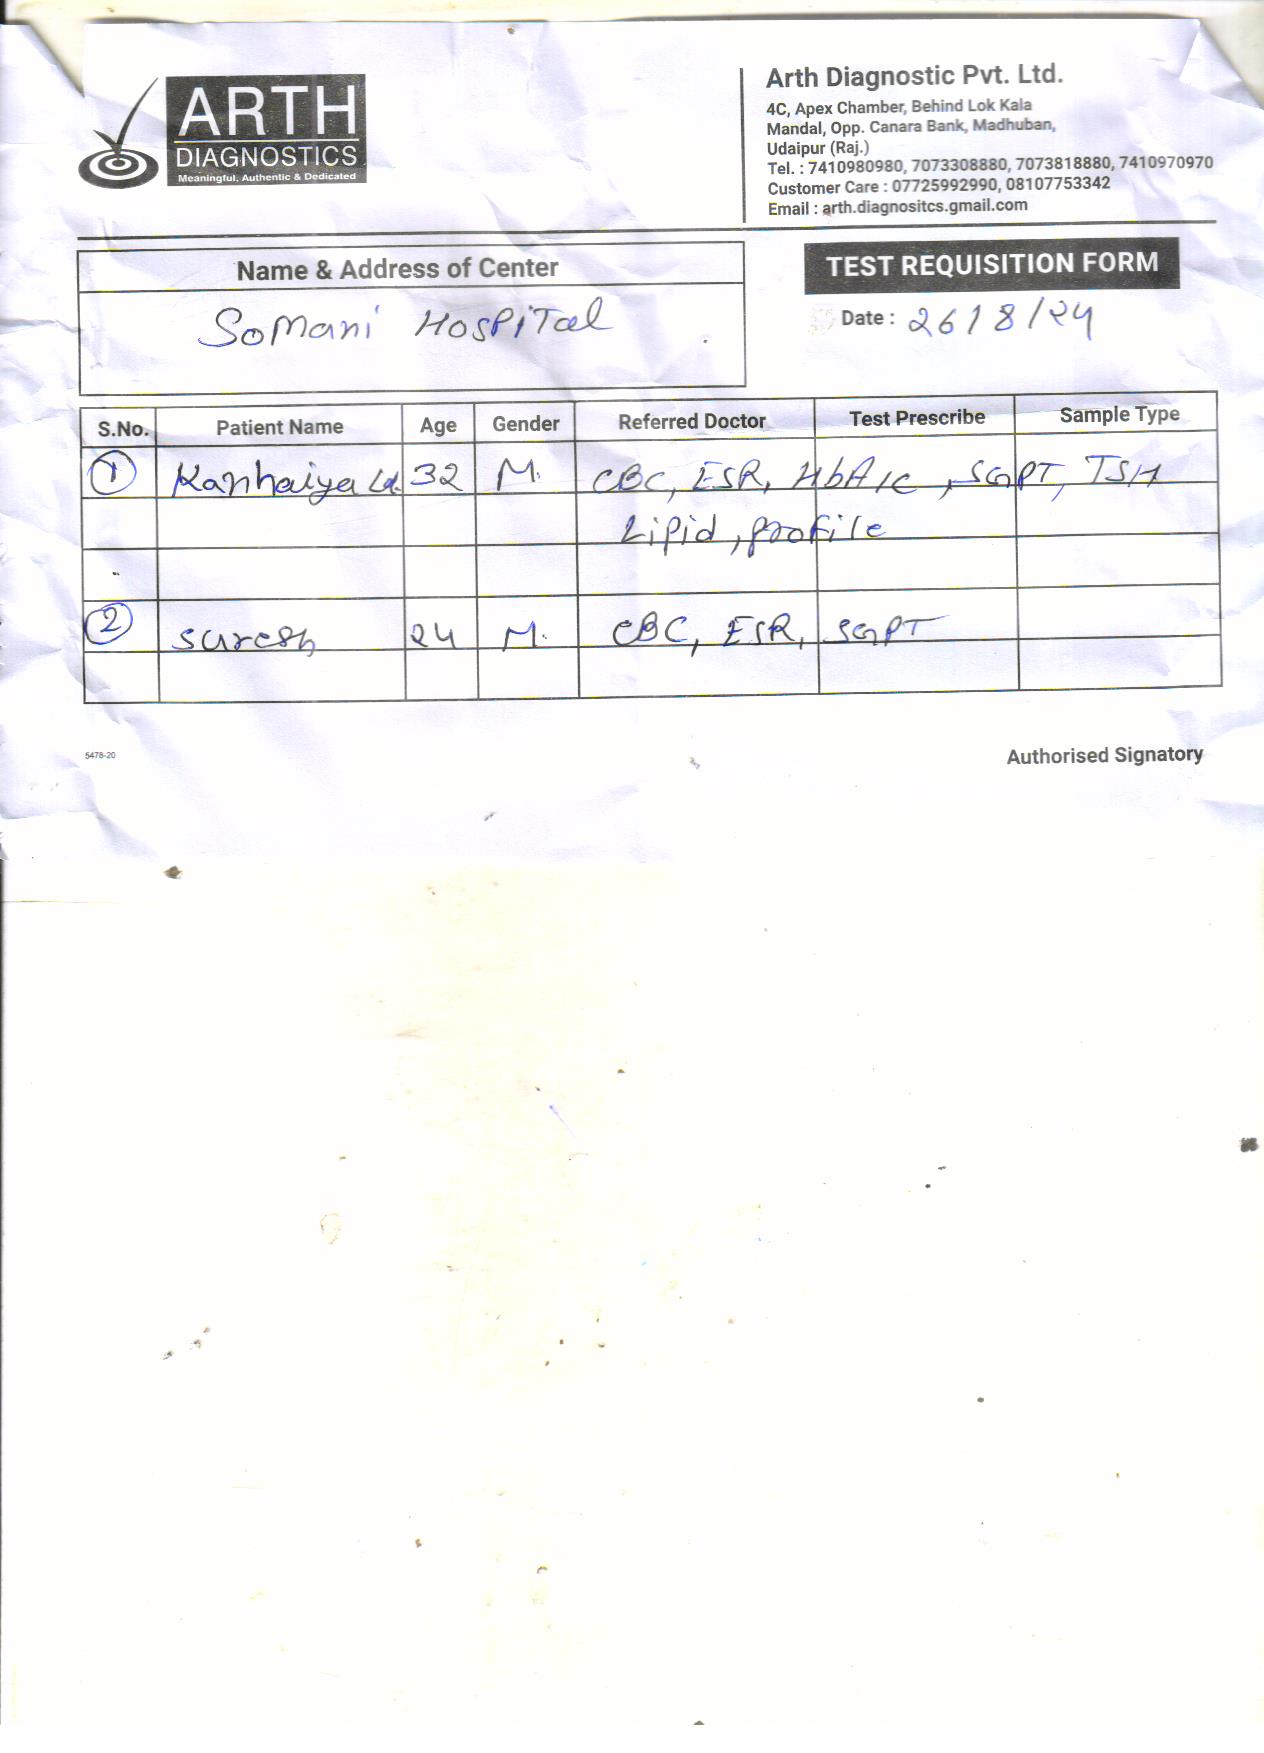 ARTH
DIAGNOSTICS
Meaningful, Authentic & Dedicated
Arth Diagnostic Pvt. Ltd.
4C, Apex Chamber, Behind Lok Kala
Mandal, Opp. Canara Bank, Madhuban,
Udaipur (Raj.)
Tel. : 7410980980, 7073308880, 7073818880, 7410970970
Customer Care : 07725992990, 08107753342
Email : arth.diagnositcs.gmail.com
Name & Address of Center
SoMani HosPiTal
TEST REQUISITION FORM
Date : 26/8/24
S.No. Patient Name Age Gender Referred Doctor Test Prescribe Sample Type
1 Kanhaiya Lal 32 M. CBC, ESR, HbA1C, SGPT, TSH
Lipid, profile
2 Suresh 24 M. CBC, ESR, SGPT
5478-20
Authorised Signatory